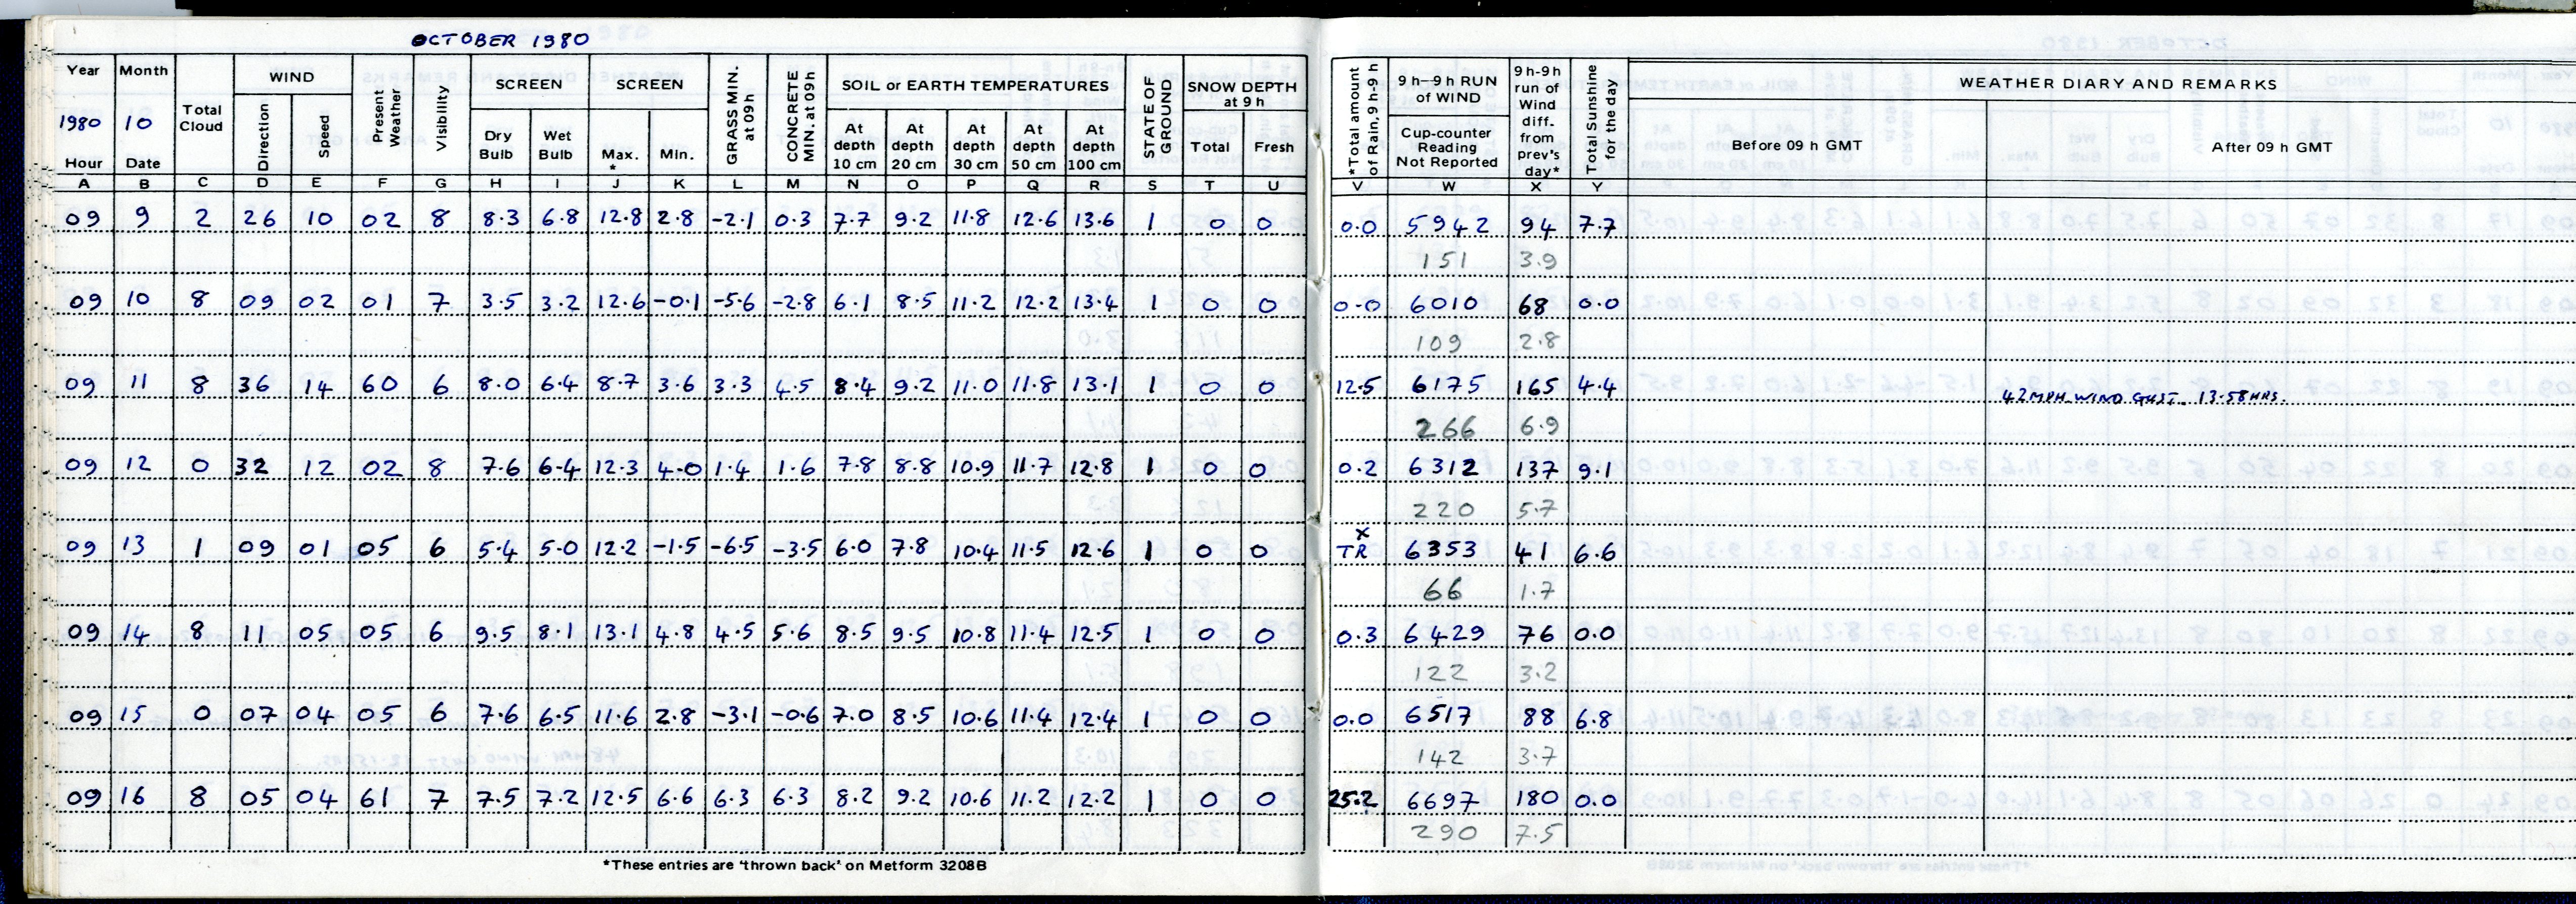 OCTOBER 1980
Year Month Total Cloud WIND Present Weather Visibility SCREEN SCREEN GRASS MIN. at 09h CONCRETE MIN. at 09h SOIL or EARTH TEMPERATURES STATE OF GROUND SNOW DEPTH at 9 h *Total amount of Rain, 9h-9h 9 h–9 h RUN of WIND 9 h-9h run of Wind diff. from prev's day* Total Sunshine for the day WEATHER DIARY AND REMARKS
1980 10
Hour Date Direction Speed Dry Bulb Wet Bulb Max. * Min. At depth 10 cm At depth 20 cm At depth 30 cm At depth 50 cm At depth 100 cm Total Fresh Cup-counter Reading Not Reported Before 09 h GMT After 09 h GMT
A B C D E F G H I J K L M N O P Q R S T U V W X Y
09 9 2 26 10 02 8 8.3 6.8 12.8 2.8 -2.1 0.3 7.7 9.2 11.8 12.6 13.6 1 0 0 0.0 5942 94 7.7
151 3.9
09 10 8 09 02 01 7 3.5 3.2 12.6 -0.1 -5.6 -2.8 6.1 8.5 11.2 12.2 13.4 1 0 0 0.0 6010 68 0.0
109 2.8
09 11 8 36 14 60 6 8.0 6.4 8.7 3.6 3.3 4.5 8.4 9.2 11.0 11.8 13.1 1 0 0 12.5 6175 165 4.4 42 MPH WIND GUST 13.58 HRS.
266 6.9
09 12 0 32 12 02 8 7.6 6.4 12.3 4.0 1.4 1.6 7.8 8.8 10.9 11.7 12.8 1 0 0 0.2 6312 137 9.1
220 5.7
x
09 13 1 09 01 05 6 5.4 5.0 12.2 -1.5 -6.5 -3.5 6.0 7.8 10.4 11.5 12.6 1 0 0 TR 6353 41 6.6
66 1.7
09 14 8 11 05 05 6 9.5 8.1 13.1 4.8 4.5 5.6 8.5 9.5 10.8 11.4 12.5 1 0 0 0.3 6429 76 0.0
122 3.2
09 15 0 07 04 05 6 7.6 6.5 11.6 2.8 -3.1 -0.6 7.0 8.5 10.6 11.4 12.4 1 0 0 0.0 6517 88 6.8
142 3.7
09 16 8 05 04 61 7 7.5 7.2 12.5 6.6 6.3 6.3 8.2 9.2 10.6 11.2 12.2 1 0 0 25.2 6697 180 0.0
290 7.5
*These entries are 'thrown back' on Metform 3208B